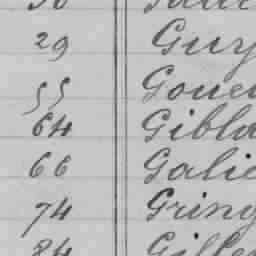 29 Guy
55 Goue
64 Gibla
66 Galie
74 Gring
84 Gille